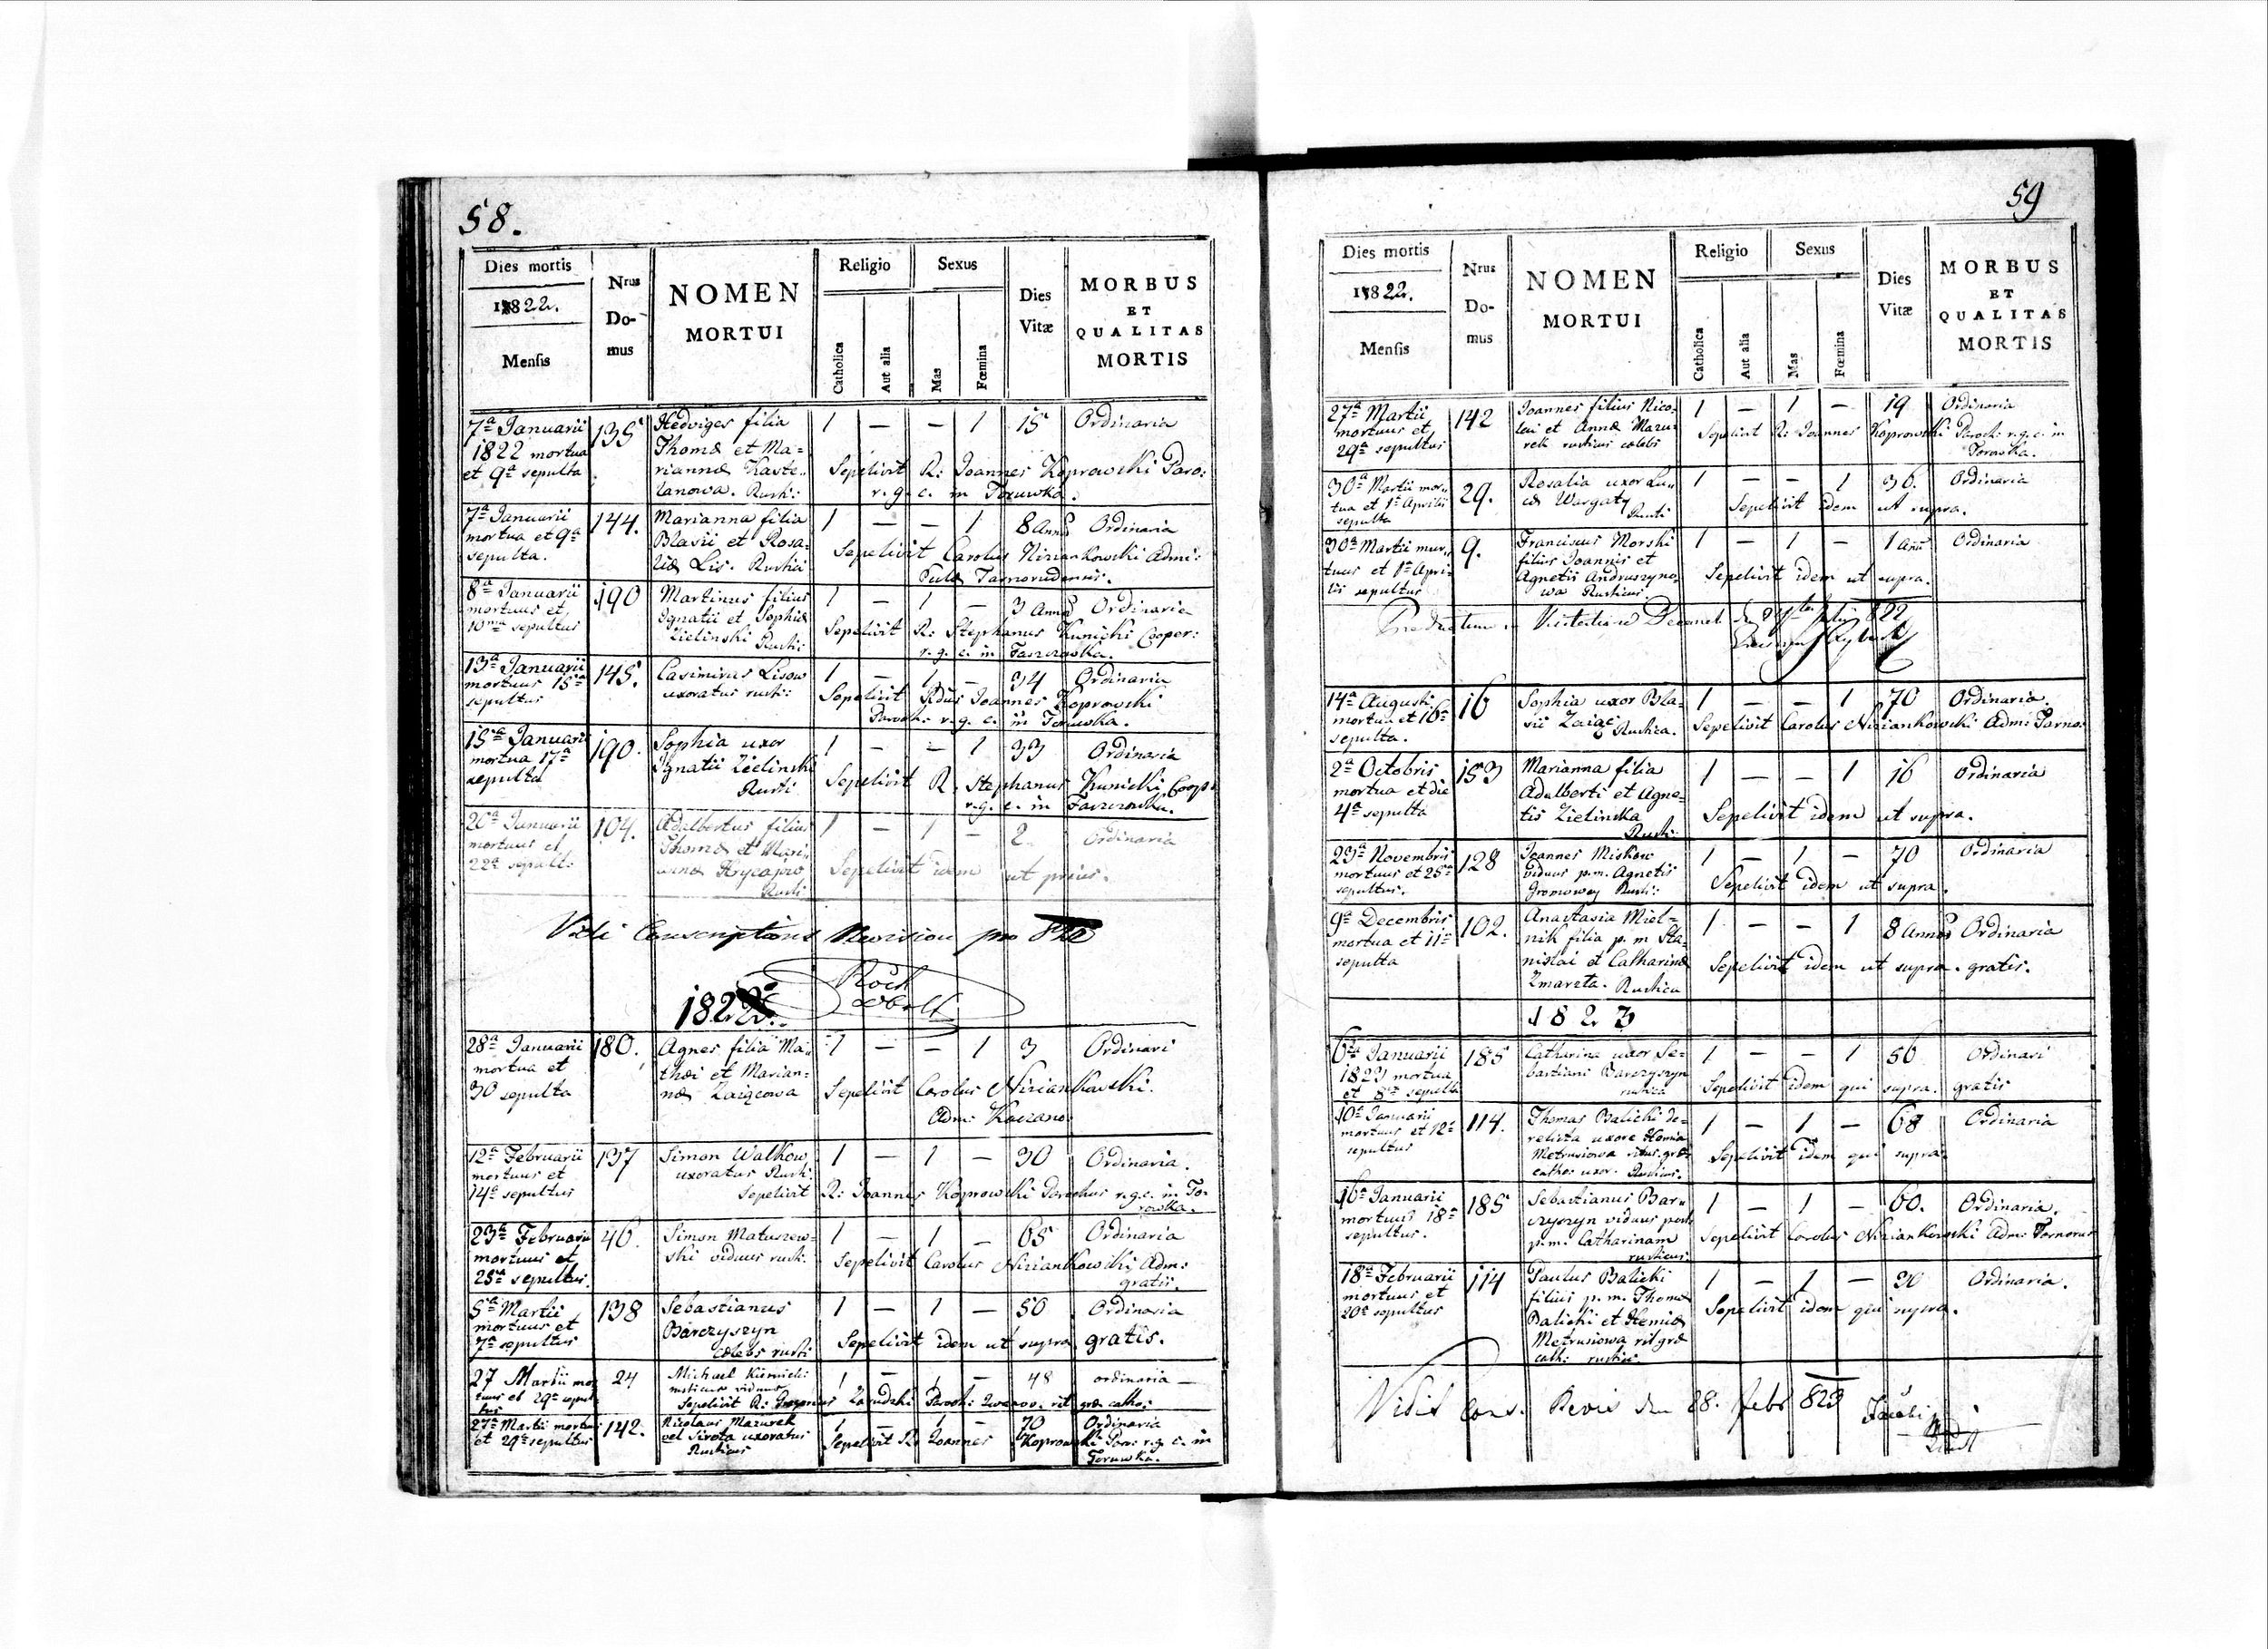 58.
Dies mortis
1822.
Mensis
Nrus
Do-
mus
NOMEN
MORTUI
Religio
Catholica
Aut alia
Sexus
Mas
Fœmina
Dies
Vitæ
MORBUS
ET
QUALITAS
MORTIS
7a Januarii 135 Hedviges filia 1 — — 1 15 Ordinaria
1822 mortua Thomæ et Ma=
et 9a sepulta riannæ Sepelivit R: Joannes Koprowski Paro:
Rusti: r. g. c. in Toruwka.
7a Januarii 144. Marianna filia 1 — — 1 8 Anno Ordinaria
mortua et 9a Blasii et Rosa-
sepulta. liæ Lis. Rustici Sepelivit Carolus Niziankowski Adm:
Tarnorudensis.
8a Januarii 190 Martinus filius 1 — 1 — 3 Anno Ordinaria
mortuus et Ignatii et Sophiæ
10ma sepultus Zielinski Rusti: Sepelivit R: Stephanus Kunicki Cooper:
r. g. c. in Faszczowka.
13a Januarii 145. Casimirus Lisow 1 — 1 — 34 Ordinaria
mortuus 15a uxoratus rusti:
sepultus Sepelivit Rdus Joannes Koprowski
Paroch: r. g. c. in Toruwka.
15a Januarii 190. Sophia uxor 1 — — 1 33 Ordinaria
mortua 17a Ignatii Zielinski
sepulta Rusti Sepelivit R. Stephanus Kunicki, Coop:
r. g. c. in Faszczowka.
20a Januarii 104. Adalbertus filius 1 — 1 — 2. Ordinaria
mortuus et Thomæ et Mari-
22a sepult: annæ Sepelivit idem ut prius.
Rusti
Vidi Conscriptions Revision pro
1822.
28a Januarii 180. Agnes filia Ma- 1 — — 1 3 Ordinari
mortua et thæi et Marian-
30 sepulta næ Zaiącowa Sepelivit Carolus Niziankowski.
Adm:
12a Februarii 137 Simon Walkow 1 — 1 — 30 Ordinaria.
mortuus et uxoratus Rusti:
14a sepultus Sepelivit R: Joannes Koprowski Parochus r.g.c. in To-
rowka.
23a Februarii 46. Simon Matuszew- 1 — 1 — 65 Ordinaria
mortuus et ski viduus rusti:
25a sepultus. Sepelivit Carolus Niziankowski Adm:
gratis.
5a Martii 138 Sebastianus 1 — 1 — 50 Ordinaria
mortuus et Barczyszyn
7a sepultus cælebs rusti Sepelivit idem ut supra gratis.
27 Martii mor 24 Michael 1 — 1 — 48 ordinaria —
tuus et 29a sepul rusticus viduus
tus Sepelivit R: Zarudzki Paroch: rit græ catho:
27a Martii mortuus 142. Nicolaus Mazurek 1 — 1 — 70 Ordinaria
et 29a sepultus vel Sirota uxoratus
Rusticus Sepelivit R: Joannes Koprowski Paro: r. g. c. in
Toruwka.
59
Dies mortis
1822.
Mensis
Nrus
Do-
mus
NOMEN
MORTUI
Religio
Catholica
Aut alia
Sexus
Mas
Fœmina
Dies
Vitæ
MORBUS
ET
QUALITAS
MORTIS
27a Martii 142 Joannes filius Nico- 1 — 1 — 19 Ordinaria
mortuus et lai et Annæ Mazu-
29a sepultus rek rusticus cælebs Sepelivit R: Joannes Koprowski Paroch: r.g.c. in
Torowka.
30a Martii mor- 29. Rosalia uxor Lu- 1 — — 1 36. Ordinaria
tua et 1a Aprilis cæ Wargaty
sepulta Rusti Sepelivit idem ut supra.
30a Martii mor- 9. Franciscus Morski 1 — 1 — 1 Ann Ordinaria
tuus et 1a Apri- filius Joannis et
lis sepultus Agnetis Andruszyno-
wa Rusticus. Sepelivit idem ut supra.
Productum in Visitatione Decanali
822
14a Augusti 16 Sophia uxor Bla- 1 — — 1 70 Ordinaria.
mortua et 16a sii Zaiąc
sepulta. Rustica. Sepelivit Carolus Niziankowski Adm: Tarno:
2a Octobris 153 Marianna filia 1 — — 1 16 Ordinaria
mortua et die Adalberti et Agne-
4a sepulta tis Zielinska
Rusti: Sepelivit idem ut supra.
23a Novembris 128 Joannes Miskow 1 — 1 — 70 Ordinaria
mortuus et 25a viduus p.m. Agnetis
sepultus. Rusti: Sepelivit idem ut supra.
9a Decembris 102. Anastasia Miel= 1 — — 1 8 Annos Ordinaria
mortua et 11a nik filia p. m Sta-
sepulta nislai et Catharinæ
Zmarzta. Rustica Sepelivit idem ut supra. gratis.
1823
6ta Januarii 185 Catharina uxor Se- 1 — — 1 56 Ordinari
1823 mortua bastiani Barczyszyn
et 8a sepulta rustica Sepelivit idem qui supra. gratis
10a Januarii 114. Thomas Balicki de- 1 — 1 — 68 Ordinaria
mortuus et 12a relicta uxore Hemia
sepultus Metrusiowa ritus græ-
catho: uxor. Rusticus. Sepelivit idem qui supra.
16a Januarii 185 Sebastianus Bar- 1 — 1 — 60. Ordinaria.
mortuus 18a czyszyn viduus post
sepultus. p.m. Catharinam
rusticus. Sepelivit Carolus Niziankowski Adm: Tarnorud
18a Februarii 114 Paulus Balicki 1 — 1 — 30 Ordinaria.
mortuus et filius p. m. Thomæ
20a sepultus Balicki et Hemiæ
Metrusiowa rit græ
cath: rusticus. Sepelivit idem qui supra.
Vidit Cons. Revis den 28. febr 823